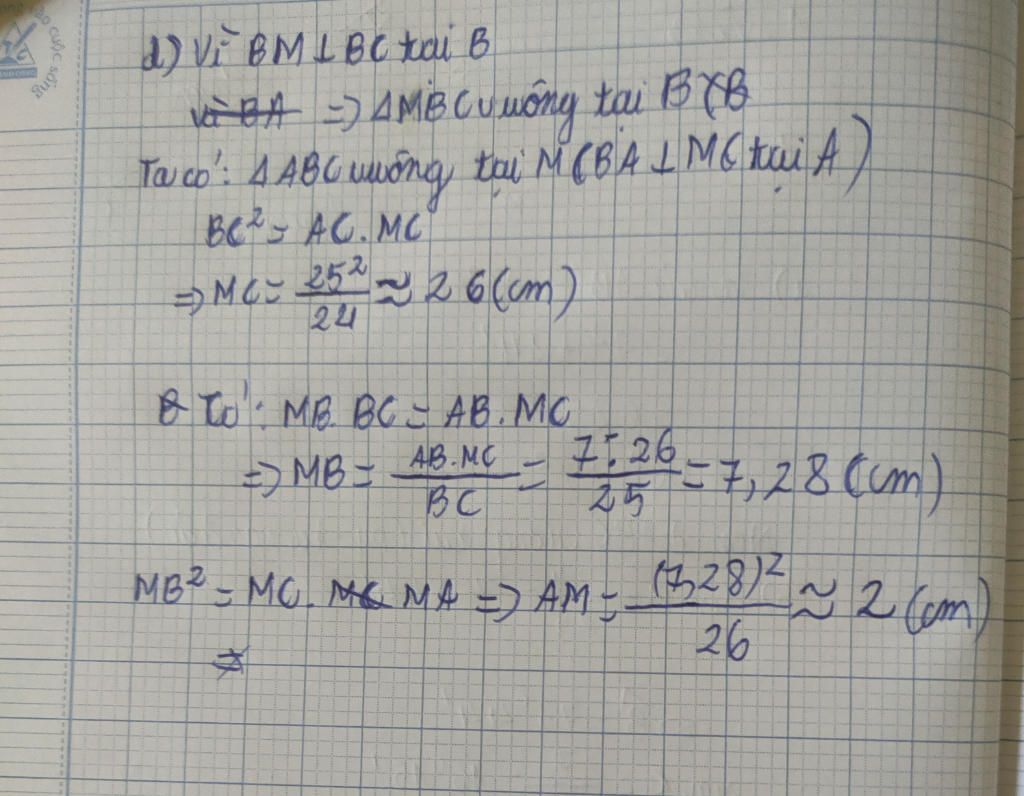 d) Vì BM ⊥ BC tại B
Vì BA => ΔMBC vuông tại B (B
Ta có: ΔABC vuông tại M (BA ⊥ MC tại A)
BC² = AC . MC
=> MC = 25²/24 ≈ 26 (cm)
Có: MB. BC = AB. MC
=> MB = AB.MC/BC = 7.26/25 = 7,28 (cm)
MB² = MC. MC MA => AM = (7,28)²/26 ≈ 2 (cm)
cuộc sống